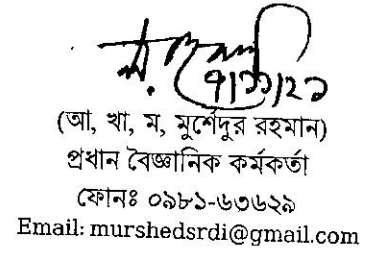 ৭/১১/২১
(আ, খা, ম, মুর্শেদুর রহমান)
প্রধান বৈজ্ঞানিক কর্মকর্তা
ফোনঃ ০৯৮১-৬৩৬২৯
Email: murshedsrdi@gmail.com